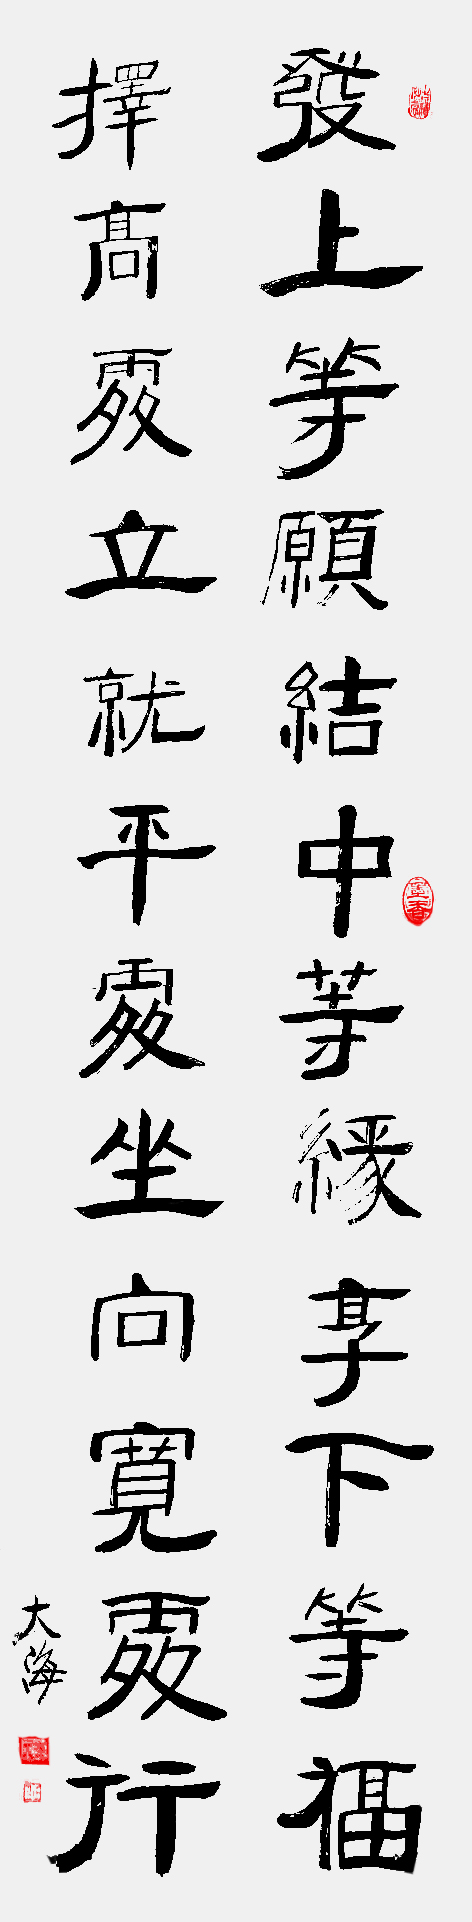 發上等願結中等緣享下等福
擇高處立就平處坐向寬處行
大海